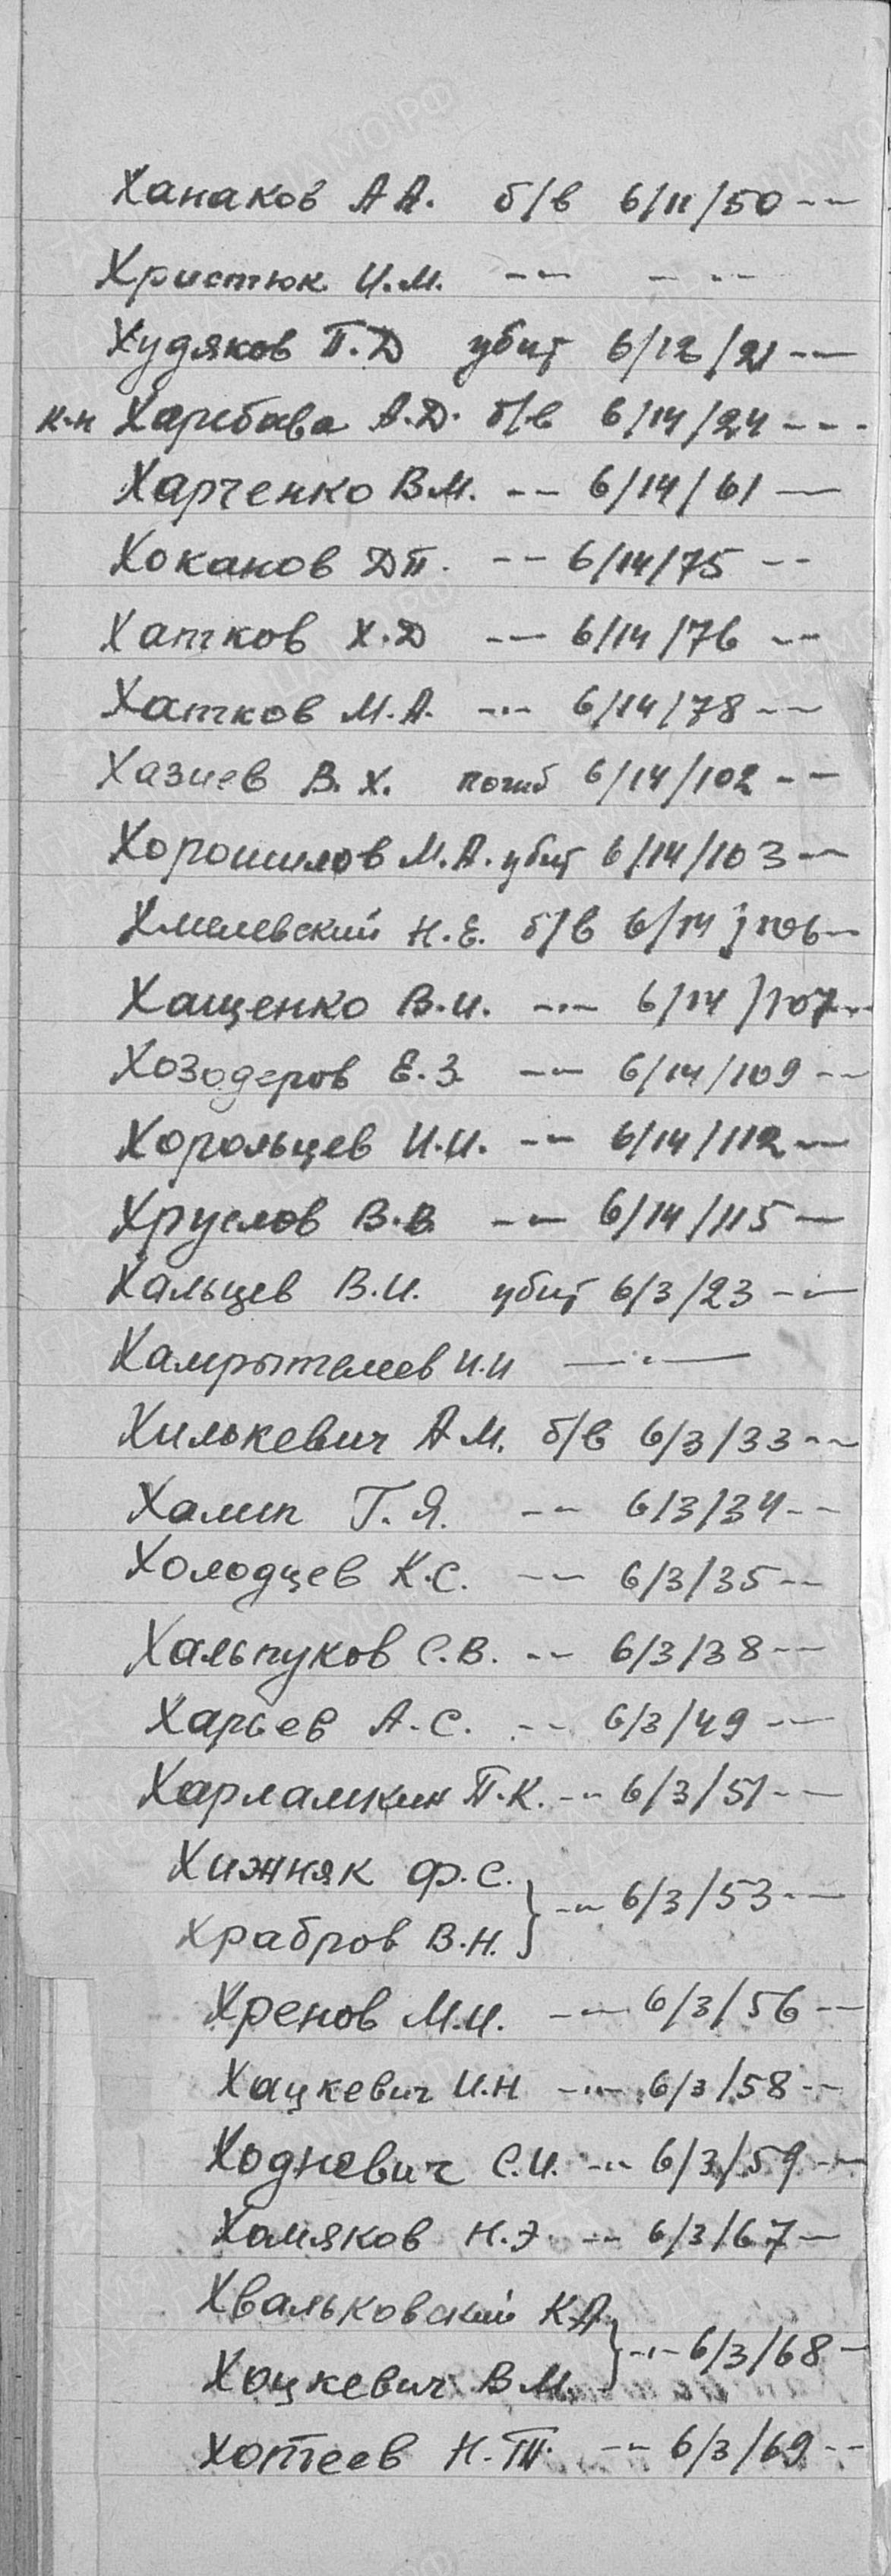 Ханаков А А. б/в 6/11/50 -·-
Христюк И.М. -·- - -·-
Худяков П.Д убит 6/12/21 -·-
к-н Харебава А.Д. б/в 6/14/24 -·-
Харченко В.М. -·- 6/14/61 —
Хоканов Д П. -·- 6/14/75 -·-
Хатков Х.Д -·- 6/14/76 -·-
Хатков М.А. -·- 6/14/78 -·-
Хазиев В. Х. погиб 6/14/102 -·-
Хорошилов М.А. убит 6/14/103 -·-
Хмилевский Н.Е. б/в 6/14/106 -
Хащенко В.И. -·- 6/14/107 -·-
Хозодеров Е.З. -·- 6/14/109 -·-
Хорольцев И.И. -·- 6/14/112 -·-
Хруслов В.В. -·- 6/14/115 —
Хальцев В.И. убит 6/3/23 -·-
И.И —·—
Хилькевич А М. б/в 6/3/33 -·-
Халип Г. Я. -·- 6/3/34 -·-
Холодцев К.С. -·- 6/3/35 -·-
Хальпуков С.В. -·- 6/3/38 -·-
Харьев А.С. -·- 6/3/49 -·-
Харламкин П.К. -·- 6/3/51 -·-
Хижняк Ф.С.
Храбров В.Н. } -·- 6/3/53 -·-
Хренов М.И. -·- 6/3/56 -·-
Хацкевич И.Н -·- 6/3/58 -·-
Ходневич С.И. -·- 6/3/59 -·-
Хомяков Н.Э. -·- 6/3/67 —
Хвальковский К.А.
Хоцкевич В М. } -·- 6/3/68 -
Хотеев Н.П. -·- 6/3/69 -·-